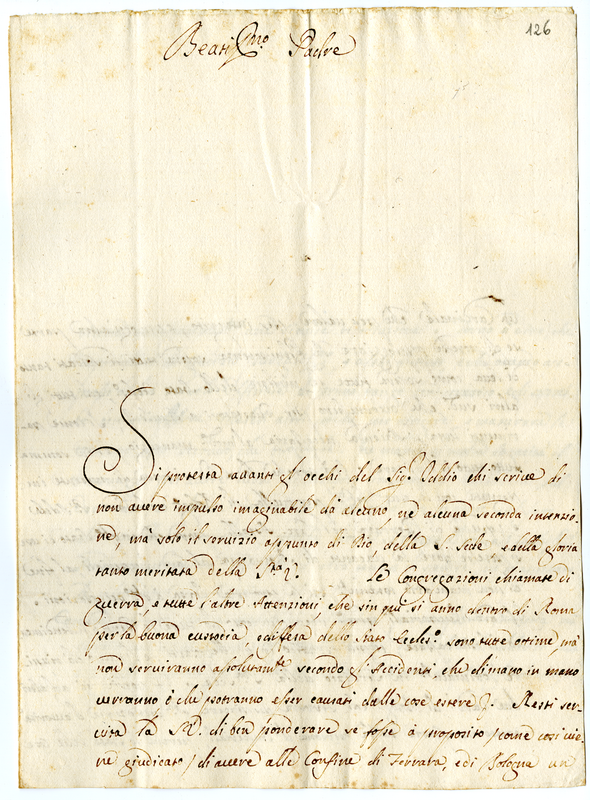 126
Beatis.mo Padre
Si protesta avanti gl'occhi del Sig.r Iddio chi scrive di
non avere impulso imaginabile da alcuno, ne alcuna seconda intenzio-
ne, mà solo il servizio appunto di Dio, della S. Sede, e della gloria
tanto meritata della S.tà V. Le Congregazioni chiamate di
guerra, e tutte l'altre Attenzioni, che sin quì si anno dentro di Roma
per la buona custodia, e difesa dello Stato Eccles.o sono tutte ottime, mà
non serviranno assolutam.te secondo gl'Accidenti, che di mano in mano
verranno ò che potranno esser causati dalle cose estere. Resti ser-
vita la S.V. di ben ponderare se fosse à proposito / come così vie-
ne giudicato / di avere alle Confine di Ferrara, e di Bologna un